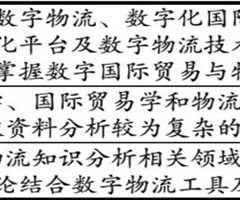 数字物流、数字化国际
化平台及数字物流技术
掌握数字国际贸易与物
、国际贸易学和物流
资料分析较为复杂的
流知识分析相关领域
论结合数字物流工具及